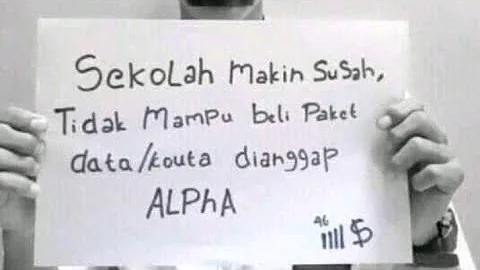 Sekolah makin susah,
Tidak mampu beli Paket
data/kouta dianggap
ALPhA
4G
$